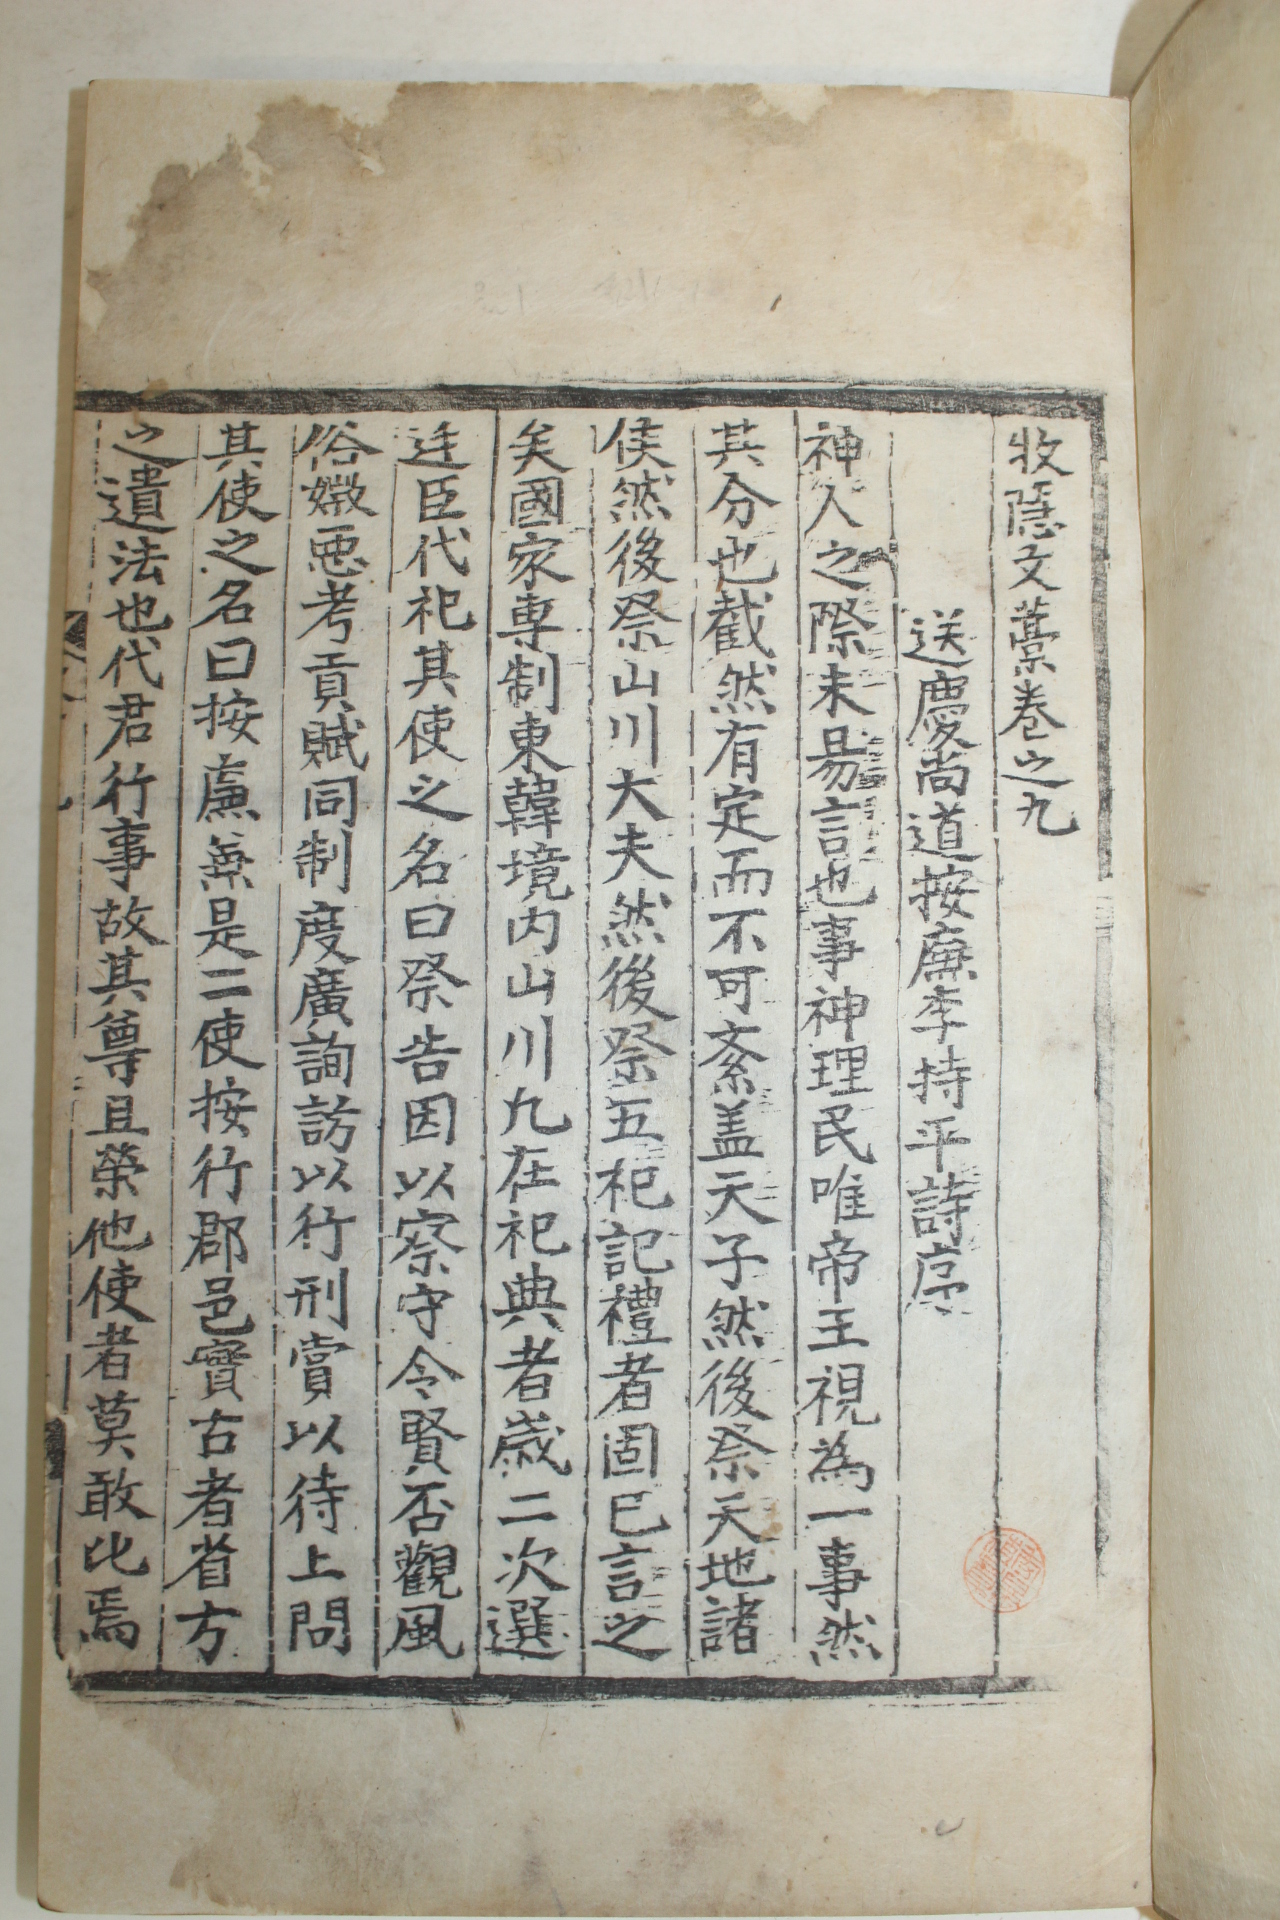 牧隱文藁卷之九
送慶尚道按廉李持平詩序
神人之際未易言也事神理民唯帝王視為一事然
其分也截然有定而不可紊盖天子然後祭天地諸
侯然後祭山川大夫然後祭五祀記禮者固已言之
矣國家專制東韓境内山川凡在祀典者歲二次選
廷臣代祀其使之名曰祭告因以察守令賢否觀風
俗媺惡考貢賦同制度廣詢訪以行刑賞以待上問
其使之名曰按廉無是二使按行郡邑實古者省方
之遺法也代君行事故其尊且榮他使者莫敢比焉